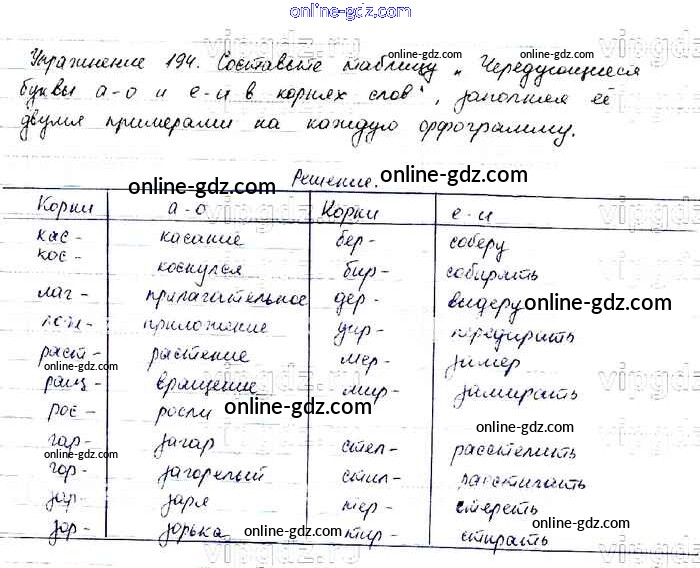 online-gdz.com
Упражнение 194. Составьте таблицу „Чередующиеся
буквы а-о и е-и в корнях слов", заполняя её
двумя примерами на каждую орфограмму.
Решение.
Корни а-о Корни е-и
кас- касание бер- соберу
кос- коснулся бир- собирать
лаг- прилагательное дер- выдеру
лож- приложение дир- придирать
раст- растение мер- замер
ращ- вращение мир- замирать
рос- росли
гар- загар стел- расстелить
гор- загорелый стил- расстилать
зар- заря тер- стереть
зор- зорька тир- стирать
online-gdz.com
online-gdz.com
online-gdz.com
online-gdz.com
online-gdz.com
online-gdz.com
online-gdz.com
online-gdz.com
online-gdz.com
online-gdz.com
online-gdz.com
online-gdz.com
online-gdz.com